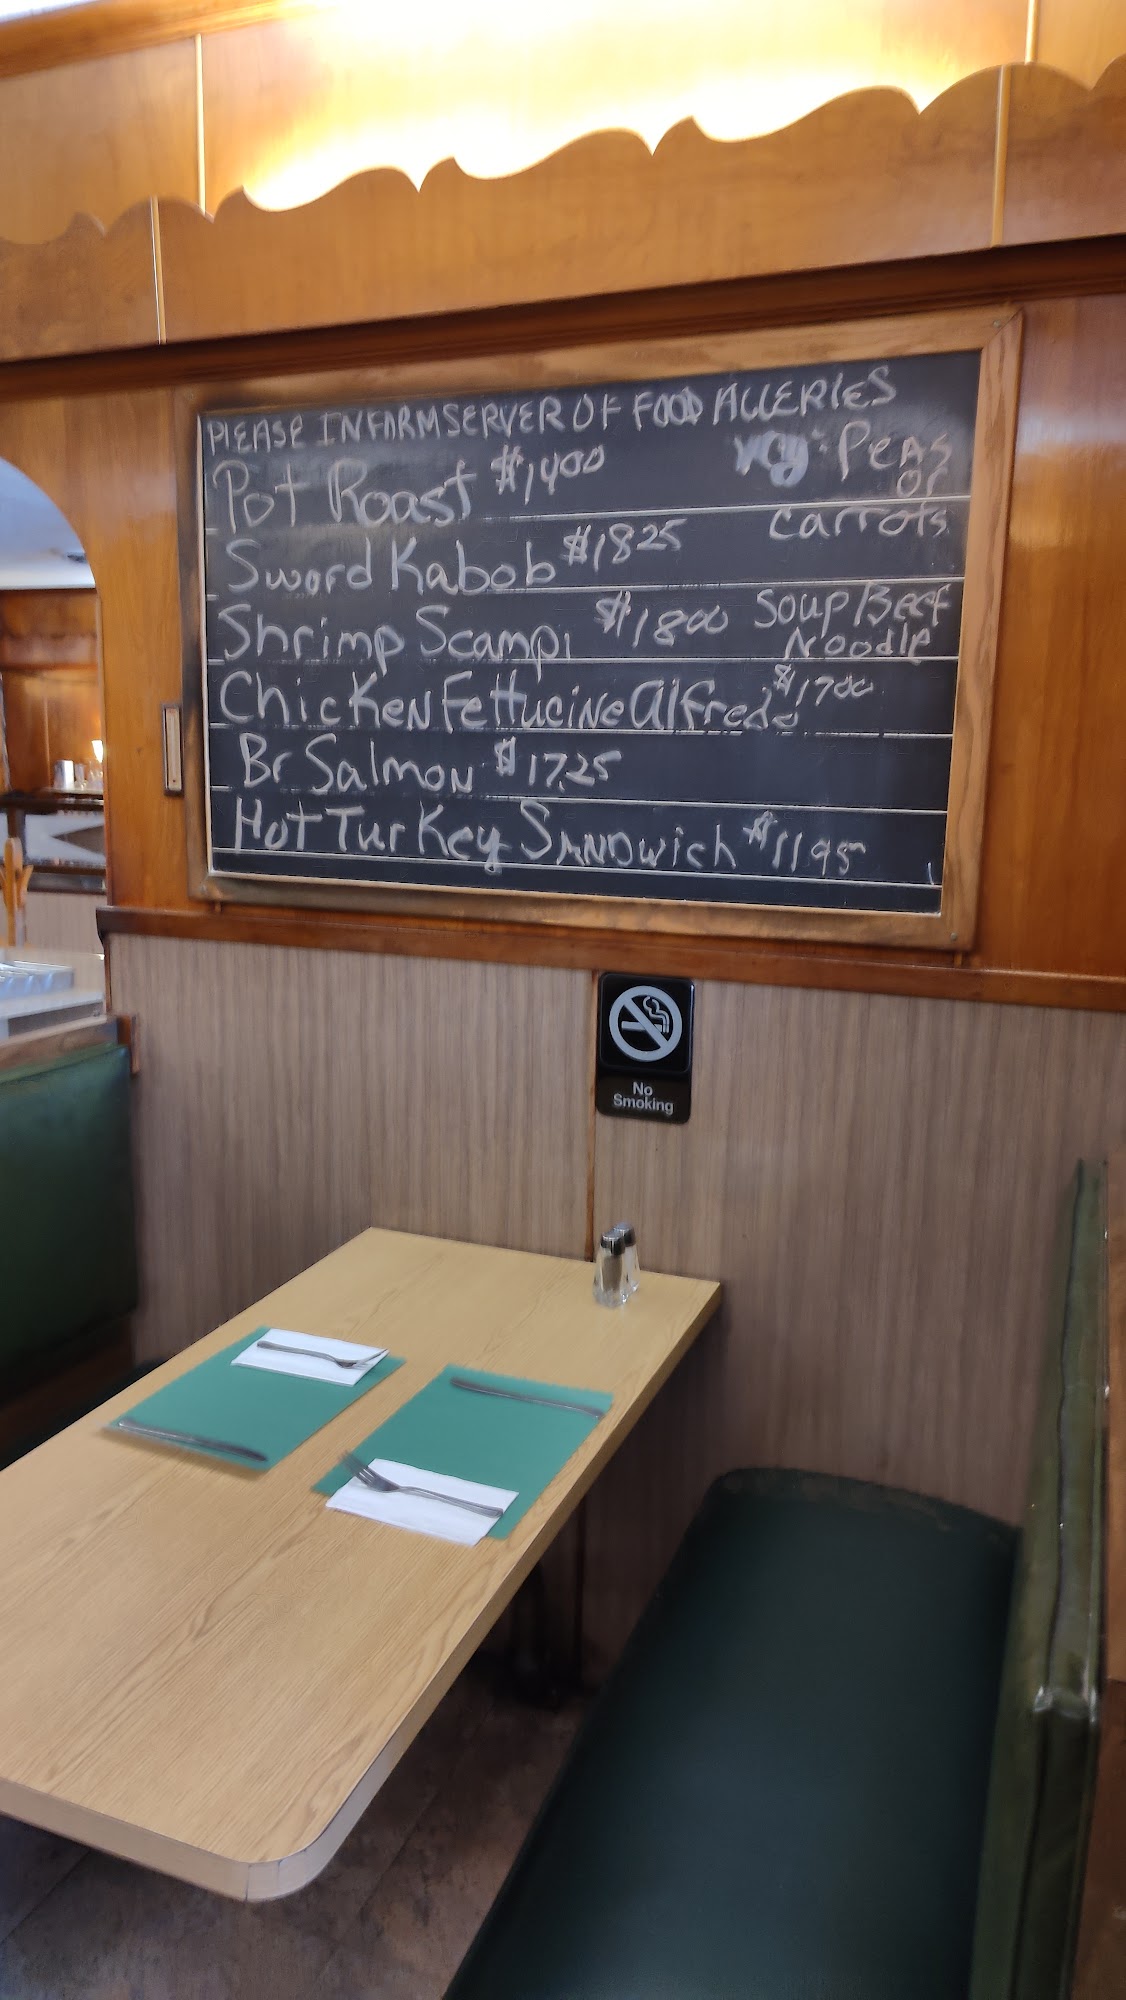 PLEASE INFORM SERVER OF FOOD ALLERIES
Pot Roast $1400
Veg: Peas
or
Carrots
Sword Kabob $1825
Shrimp Scampi $1800
Soup Beef
Noodle
Chicken Fettucine Alfredo $1700
Br Salmon $17.25
Hot Turkey Sandwich $1195
No
Smoking